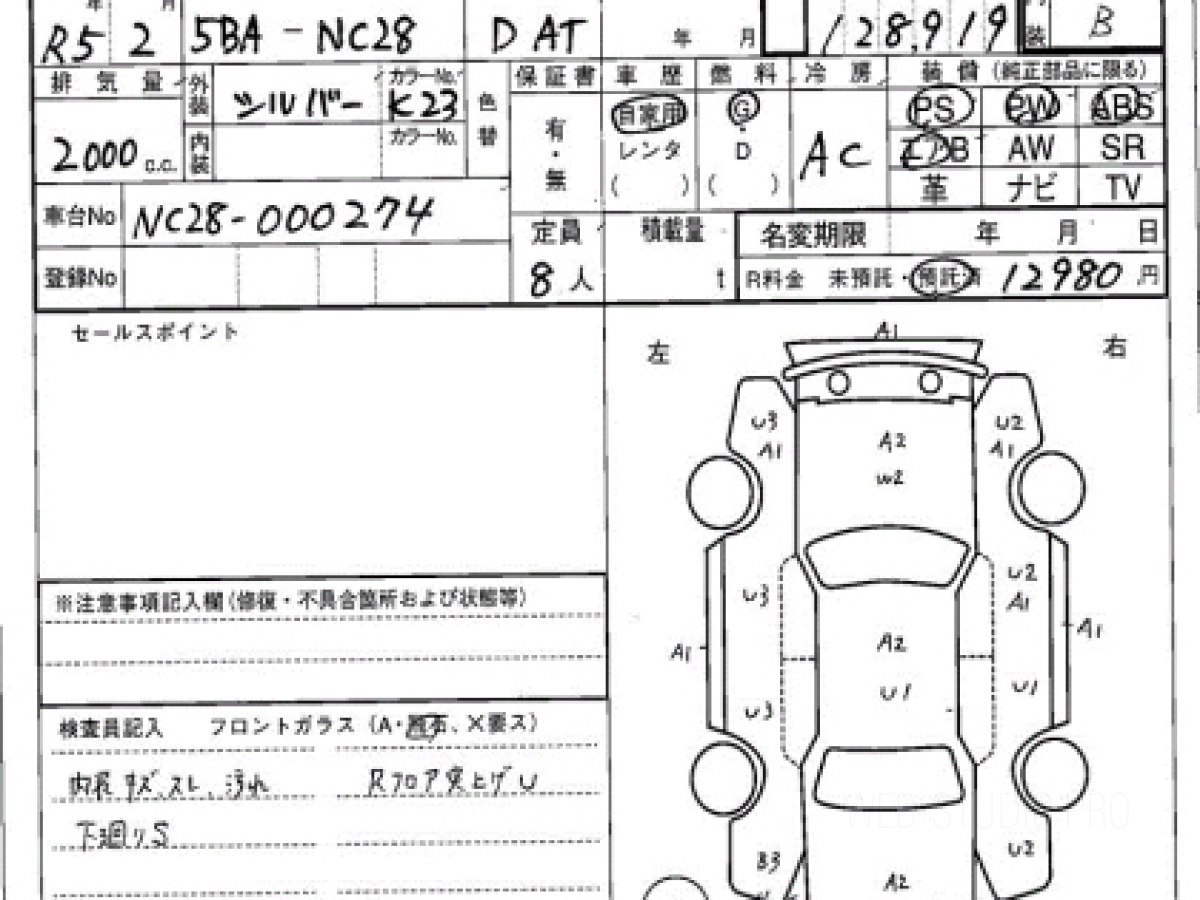 年 月
R5 2 5BA-NC28 D AT 年 月 128,919 装 B
排気量 外装 シルバー カラーNo. K23 色替 保証書 車歴 燃料 冷房 装備 (純正部品に限る)
2000 c.c. 内装 カラーNo. 有・無 自家用 レンタ ( ) G・D ( ) AC PS PW ABS
エアB AW SR
革 ナビ TV
車台No NC28-000274
定員 積載量 名変期限 年 月 日
登録No 8人 t R料金 未預託・預託済 12980 円
セールスポイント
左 A1 右
U3 U2
A1 A2 A1
W2
U3 U2
A1
A1 A2 A1
U1 U1
U3
※注意事項記入欄(修復・不具合箇所および状態等)
検査員記入 フロントガラス (A・飛石、X要ス)
内装キズ、スレ、汚れ Rフロア突上げU
下廻りS
B3 A2 U2
WEB STUDIO PRO